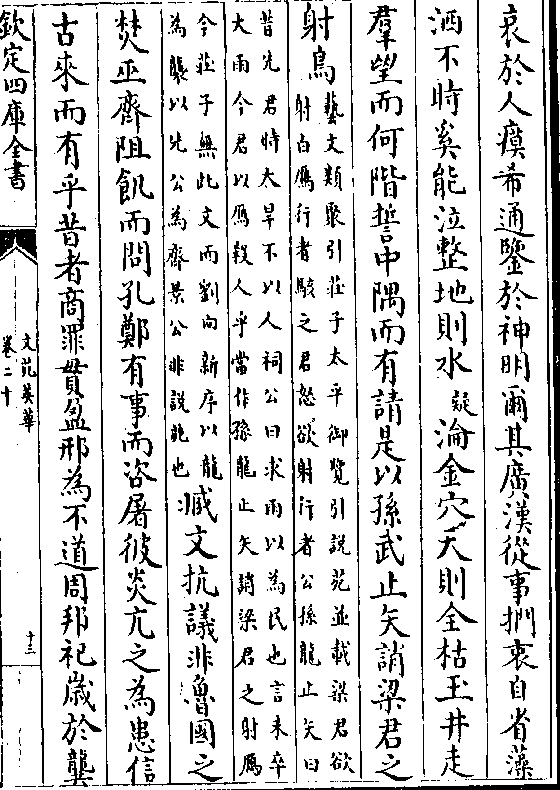 哀於人瘼希通鑒於神明爾其廣漢從事捫衷自省藻
洒不時奚能泣整地則水疑淪金穴天則全枯玉井走
羣望而何階誓中隅而有請是以孫武止矢誚梁君之
射鳥藝文類聚引莊子太平御覽引說苑並載梁君欲
射白鴈行者駭之君怒欲射行者公孫龍止矢曰
昔先君時大旱不以人祠公曰求雨以為民也言未卒
大雨今君以鴈殺人乎當作孫龍止矢誚梁君之射鴈
今莊子無此文而劉向新序以龍
為襲以先公為齊景公非說苑也臧文抗議非魯國之
焚巫齊阻飢而問孔鄭有事而咨屠彼炎亢之為患信
古來而有乎昔者商罪貫盈邢為不道周邦祀歲於龔
欽定四庫全書
文苑英華
卷二十
十三